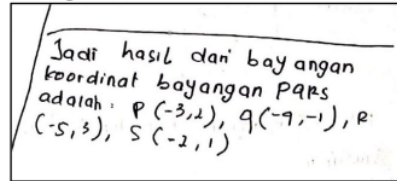 Jadi hasil dari bayangan
koordinat bayangan PQRS
adalah: P (-3,2), Q (-9,-1), R
(-5,3), S (-2,1)